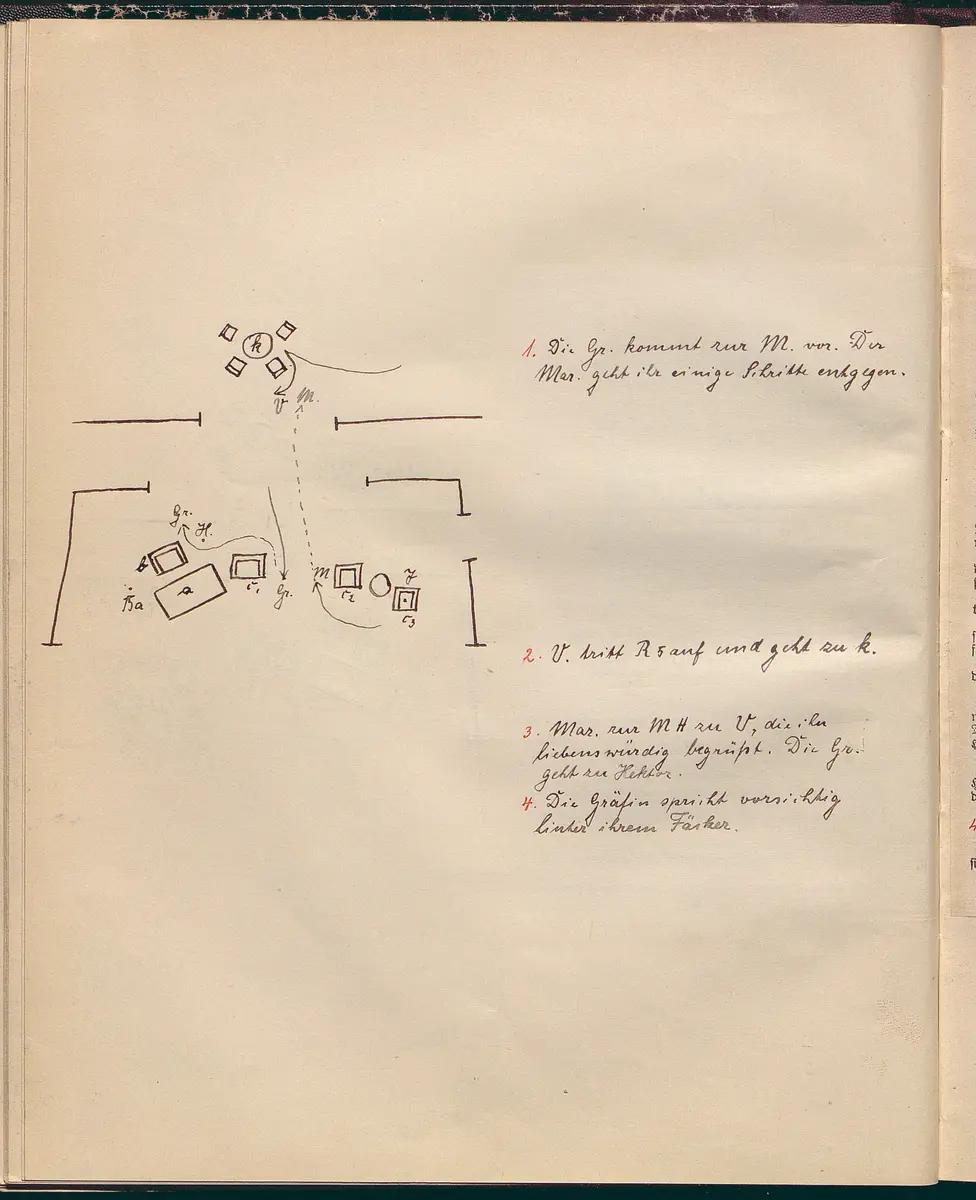 k
V M.
Gr. H.
b a c1 Gr. M c2 J
Ba c3
1. Die Gr. kommt zur M. vor. Der
Mar. geht ihr einige Schritte entgegen.
2. V. tritt R 5 auf und geht zu k.
3. Mar. zur M H zu V, die ihn
liebenswürdig begrüßt. Die Gr.
geht zu Hektor.
4. Die Gräfin spricht vorsichtig
hinter ihrem Fächer.